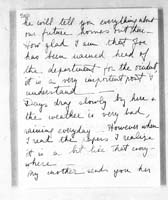 he will tell you everything about
our future homes but then
How glad I am that Joe
has been named head of
the department for the orient,
it is a very important post I
understand
Days drag slowly by here as
the weather is very bad,
raining everyday. However when
I read the papers I realize
it is a bit like that every-
where
My mother sends you her